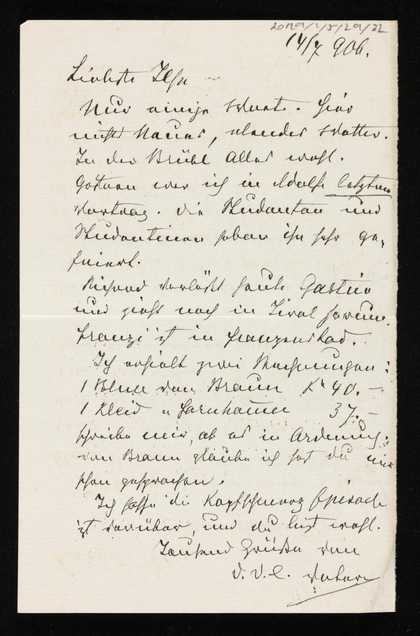 14/7 906.
Liebste Ilse
Nur einige Worte. Hier
nicht Neues, elendes Wetter.
In der Brühl Alles wohl.
Gestern war ich in Adolfs letzten
Vortrag. Die Studenten und
Studentinen haben ihn sehr ge-
feiert.
Richard verläßt heute Gastein
und geht noch in Tirol herum.
Franzi ist in Franzensbad.
Ich erhielt zwei Rechnungen:
1 Blouse von Braun K 40.–
1 Kleid 37.–
schreibe mir, ob es in Ordnung;
von Braun glaube ich hast du mir
schon gesprochen.
Ich hoffe die Kopfschmerz Episode
ist vorüber, und du bist wohl.
Tausend Grüße von
d. d. l. Vater